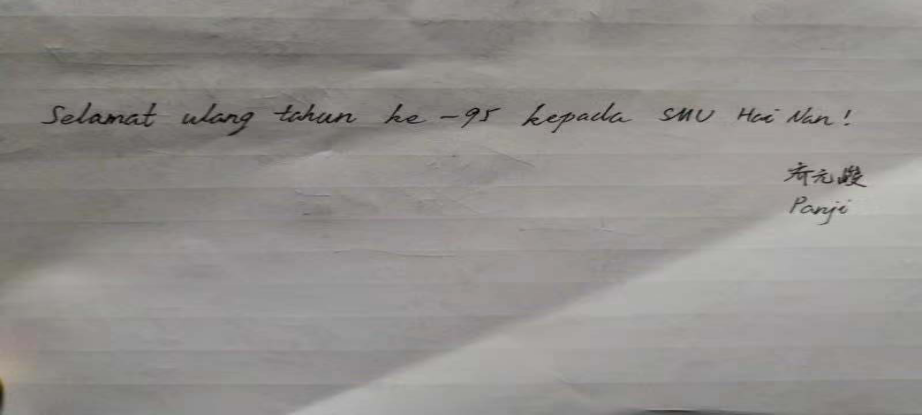 Selamat ulang tahun ke-95 kepada SMU Hai Nan!
齐元骏
Panji